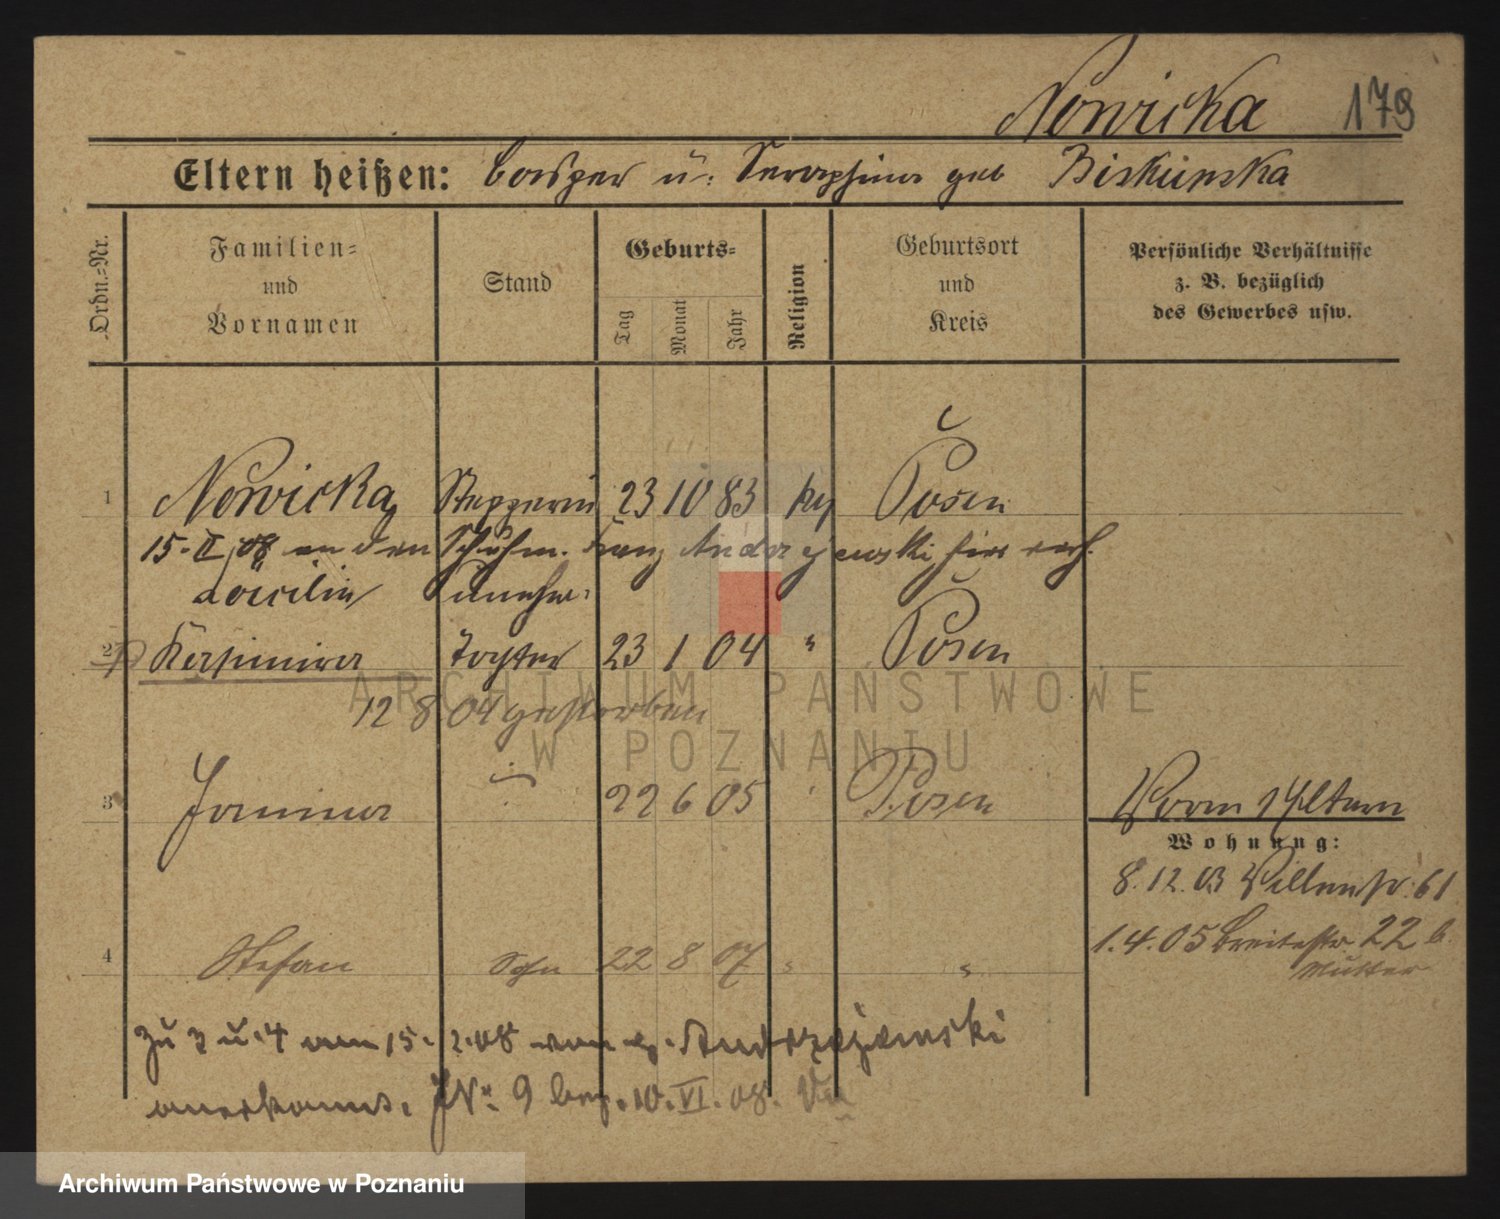 Nowicka 179
Eltern heißen: Casper u. Seraphina geb Biskupska
Ordn.=Nr.
Familien=
und
Vornamen
Stand
Geburts=
Tag
Monat
Jahr
Religion
Geburtsort
und
Kreis
Persönliche Verhältnisse
z. B. bezüglich
des Gewerbes usw.
1 Nowicka, Stepperin 23 10 83 kg Posen
15.II.08 an den Schuhm. Franz Andrzejewski hier verh.
Cäcilie
2 Kasimira Tochter 23 1 04 " Posen
12 8 04 gestorben
3 Janina 22 6 05 Posen
Eltern
Wohnung:
8.12.03 61
1.4.05 Breitestr 22 b
Mutter
4 Stefan Sohn 22 8 07
Zu 3 u. 4 am 15.2.08 von Andrzejewski
anerkannt. 9 10.VI.08.
ARCHIWUM PAŃSTWOWE
W POZNANIU
Archiwum Państwowe w Poznaniu